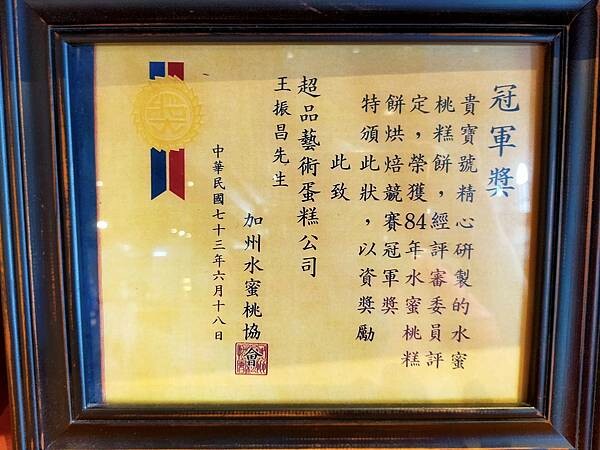 冠軍獎
貴寶號精心研製的水蜜
桃糕餅，經評審委員評
定，榮獲84年水蜜桃糕
餅烘焙競賽冠軍獎
特頒此狀，以資獎勵
此致
超品藝術蛋糕公司
王振昌先生
加州水蜜桃協會
中華民國七十三年六月十八日